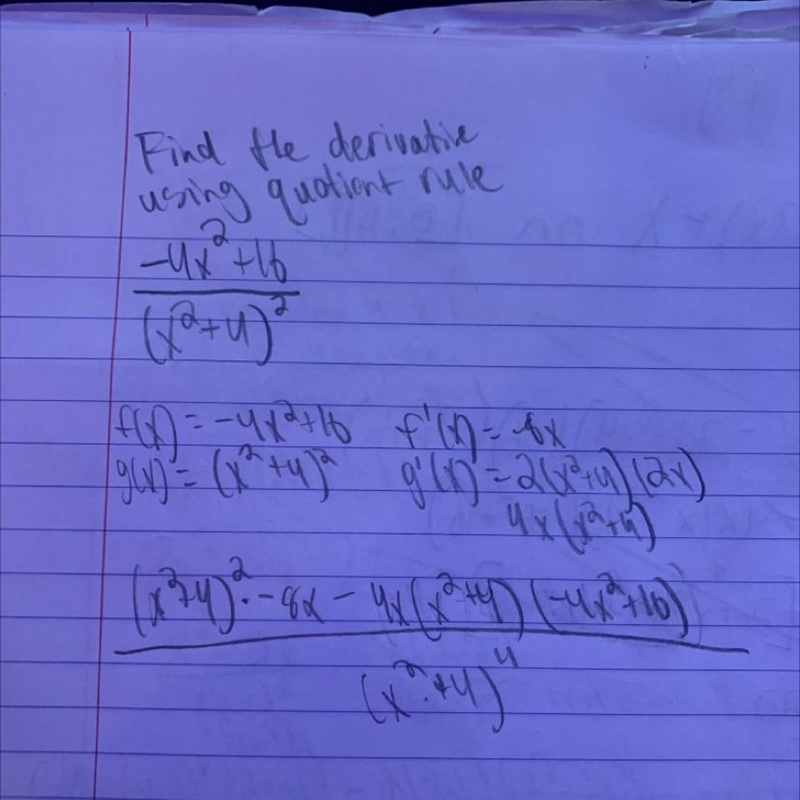 Find the derivative
using quotient rule
-4x²+16
(x²+4)²
f(x) = -4x²+16 f'(x) = -8x
g(x) = (x²+4)² g'(x) = 2(x²+4)(2x)
4x(x²+4)
(x²+4)²·-8x - 4x(x²+4)(-4x²+16)
(x²+4)⁴